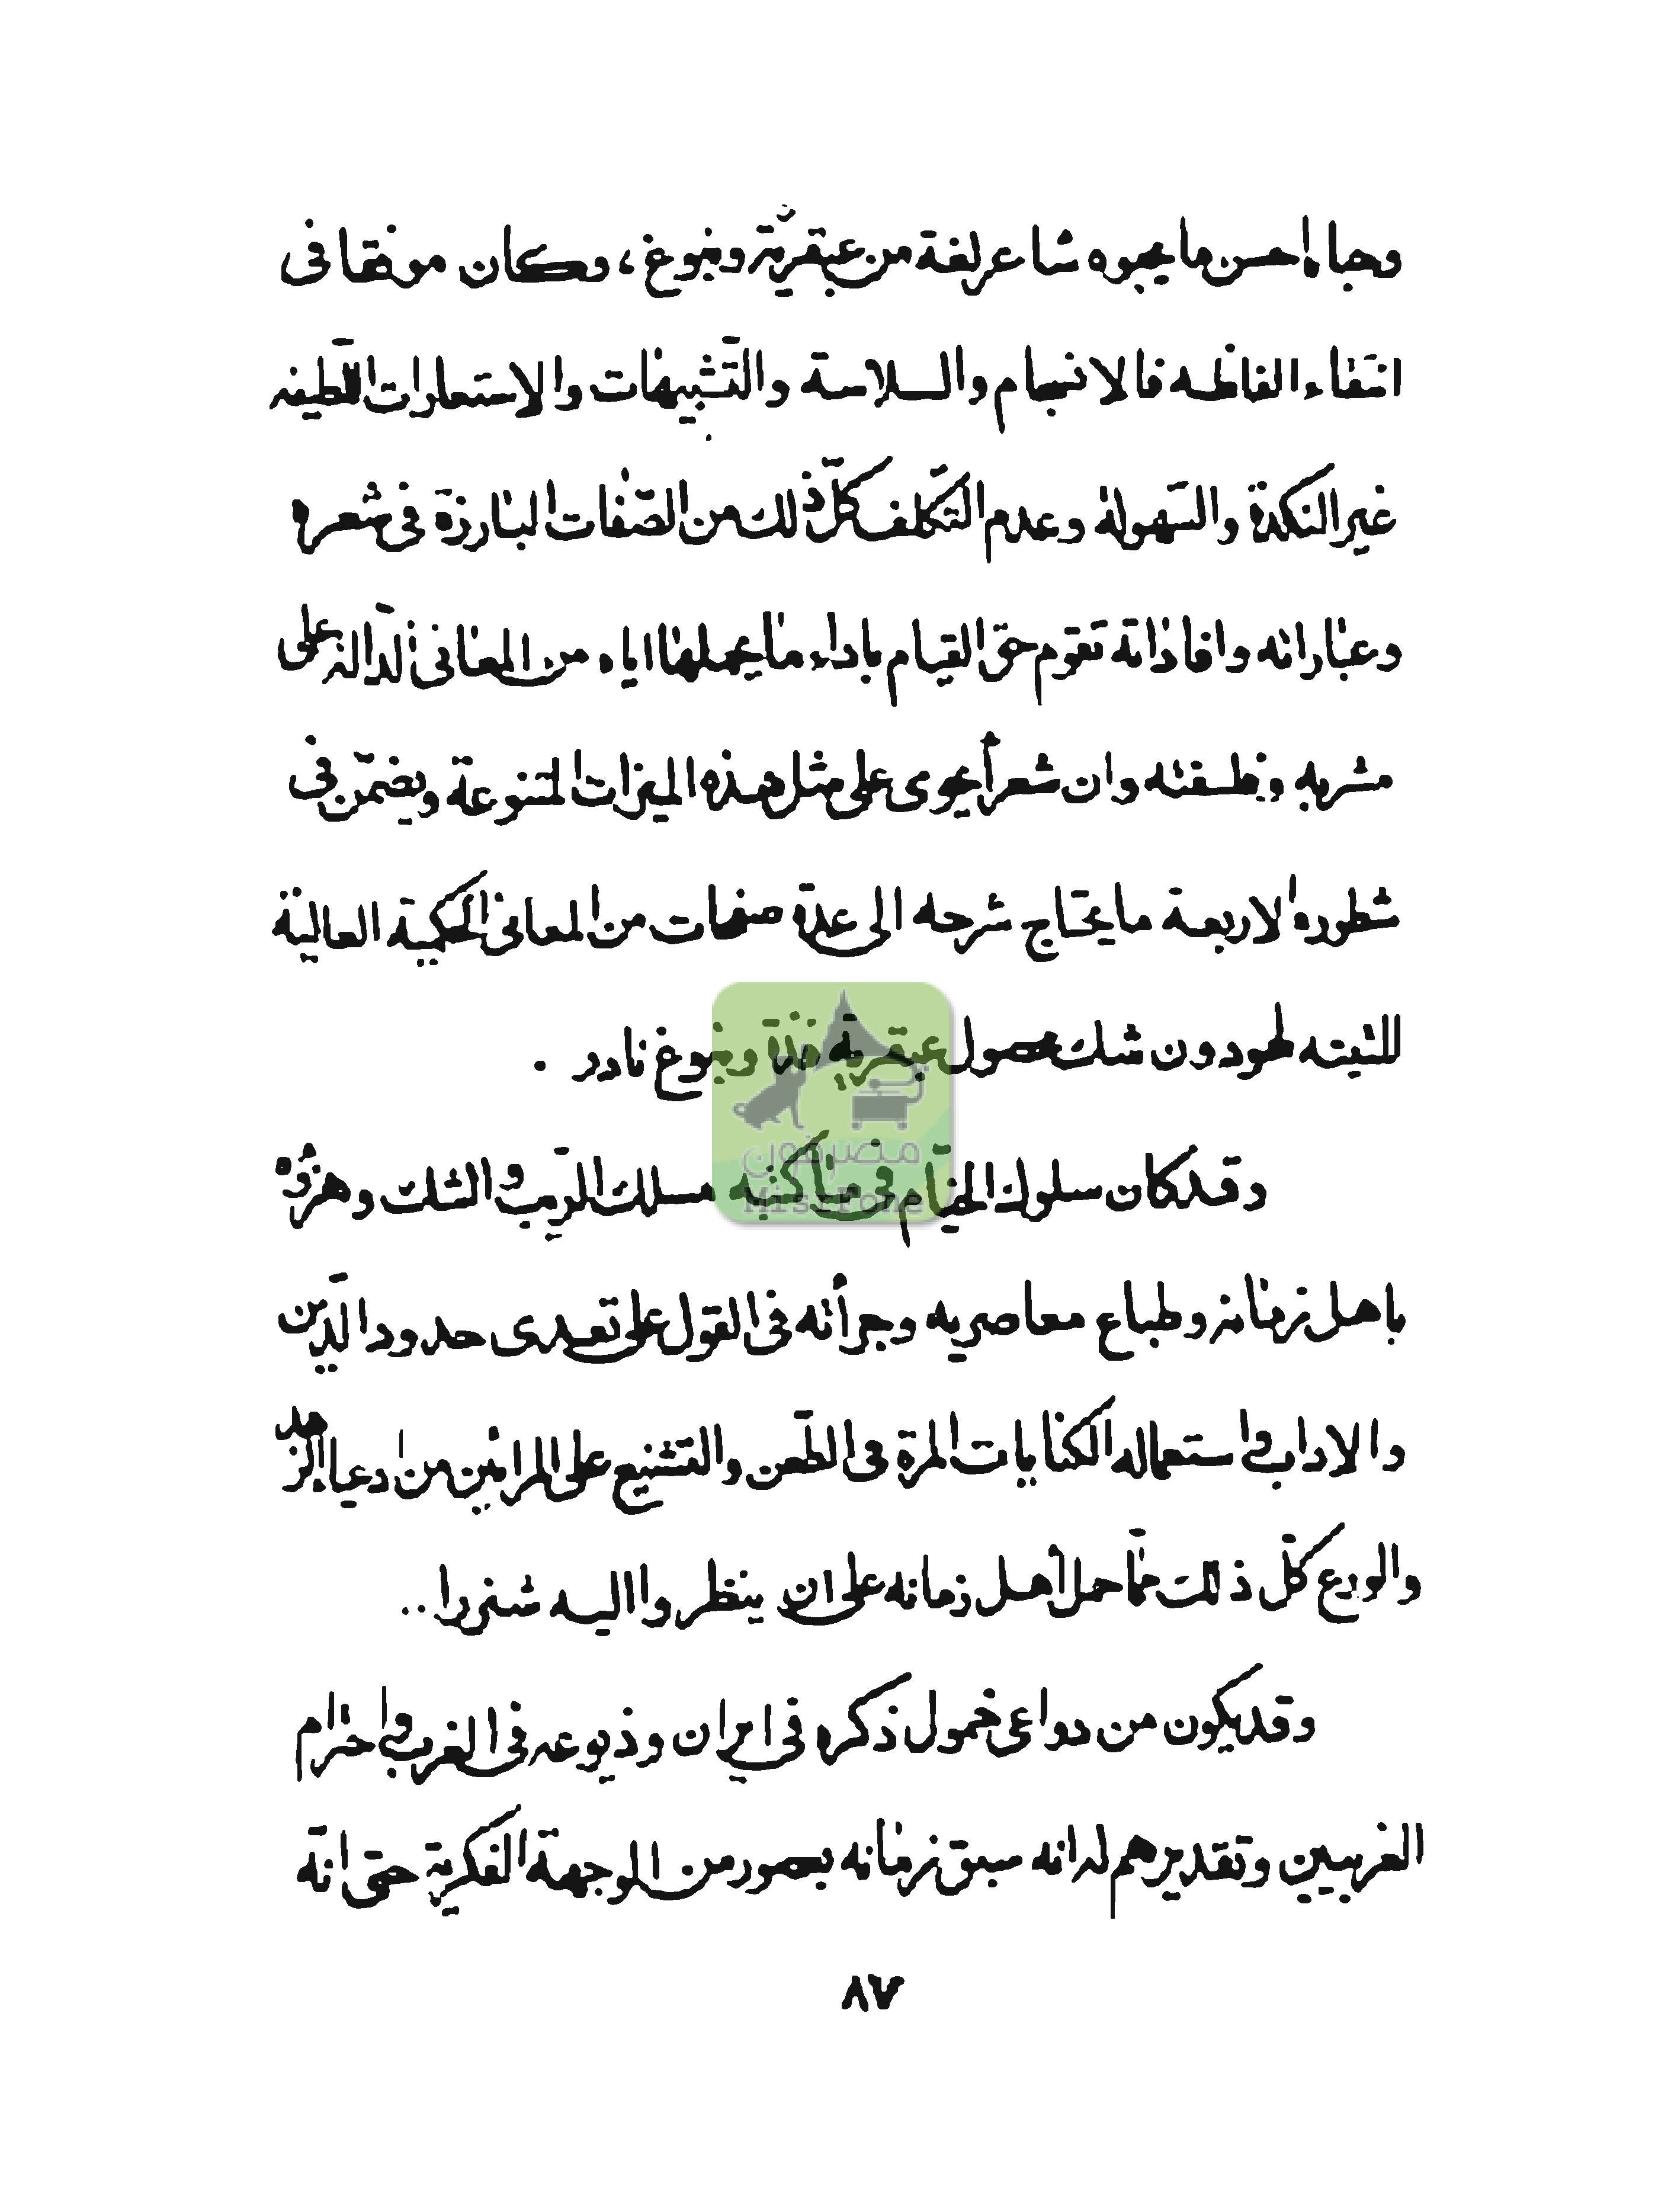 وحباه احسن ما يحبوه شاعر لغة من عبقريّة ونبوغ، وكان موفقا فى
انتقاء الفاظه فالانسجام والسلاسة والتّشبيهات والاستعارات اللّطيفه
غير النكدة والسّهولة وعدم التّكلف كلّ ذلك من الصّفات البارزة فى شعره
وعباراته وافاداته تقوم حق القيام باداء ما يحملها اياه من المعانى الدّالة على
مشربه وفلسفته وان شعراً يحوى على مثل هذه الميزات المتنوعة ويضمّن فى
شطوره الاربعة ما يحتاج شرحه الى عدة صفحات من المعانى الحكمية العالية
للثبته لهو دون شك محصول عبقرية فذة ونبوغ نادر .
وقد كان سلوك الخيّام فى ما كتبه مسلك المريب والشك وهزؤه
باهل زمانه وطباع معاصريه وجرأته فى القول على تعدى حدود الدّين
والاداب فى استعماله الكنايات المرة فى الطّعن والتشنيع على المرائين من ادعياء الزهد
والورع كلّ ذلك ممّا حمل أهل زمانه على ان ينظروا اليه شزرا..
وقد يكون من دواعى خمول ذكره فى ايران وذيوعه فى الغرب واحترام
الغربيين وتقديرهم له انه سبق زمانه بعصور من الوجهة الفكرية حتى انّه
٨٧
مصرفون
MisrFone